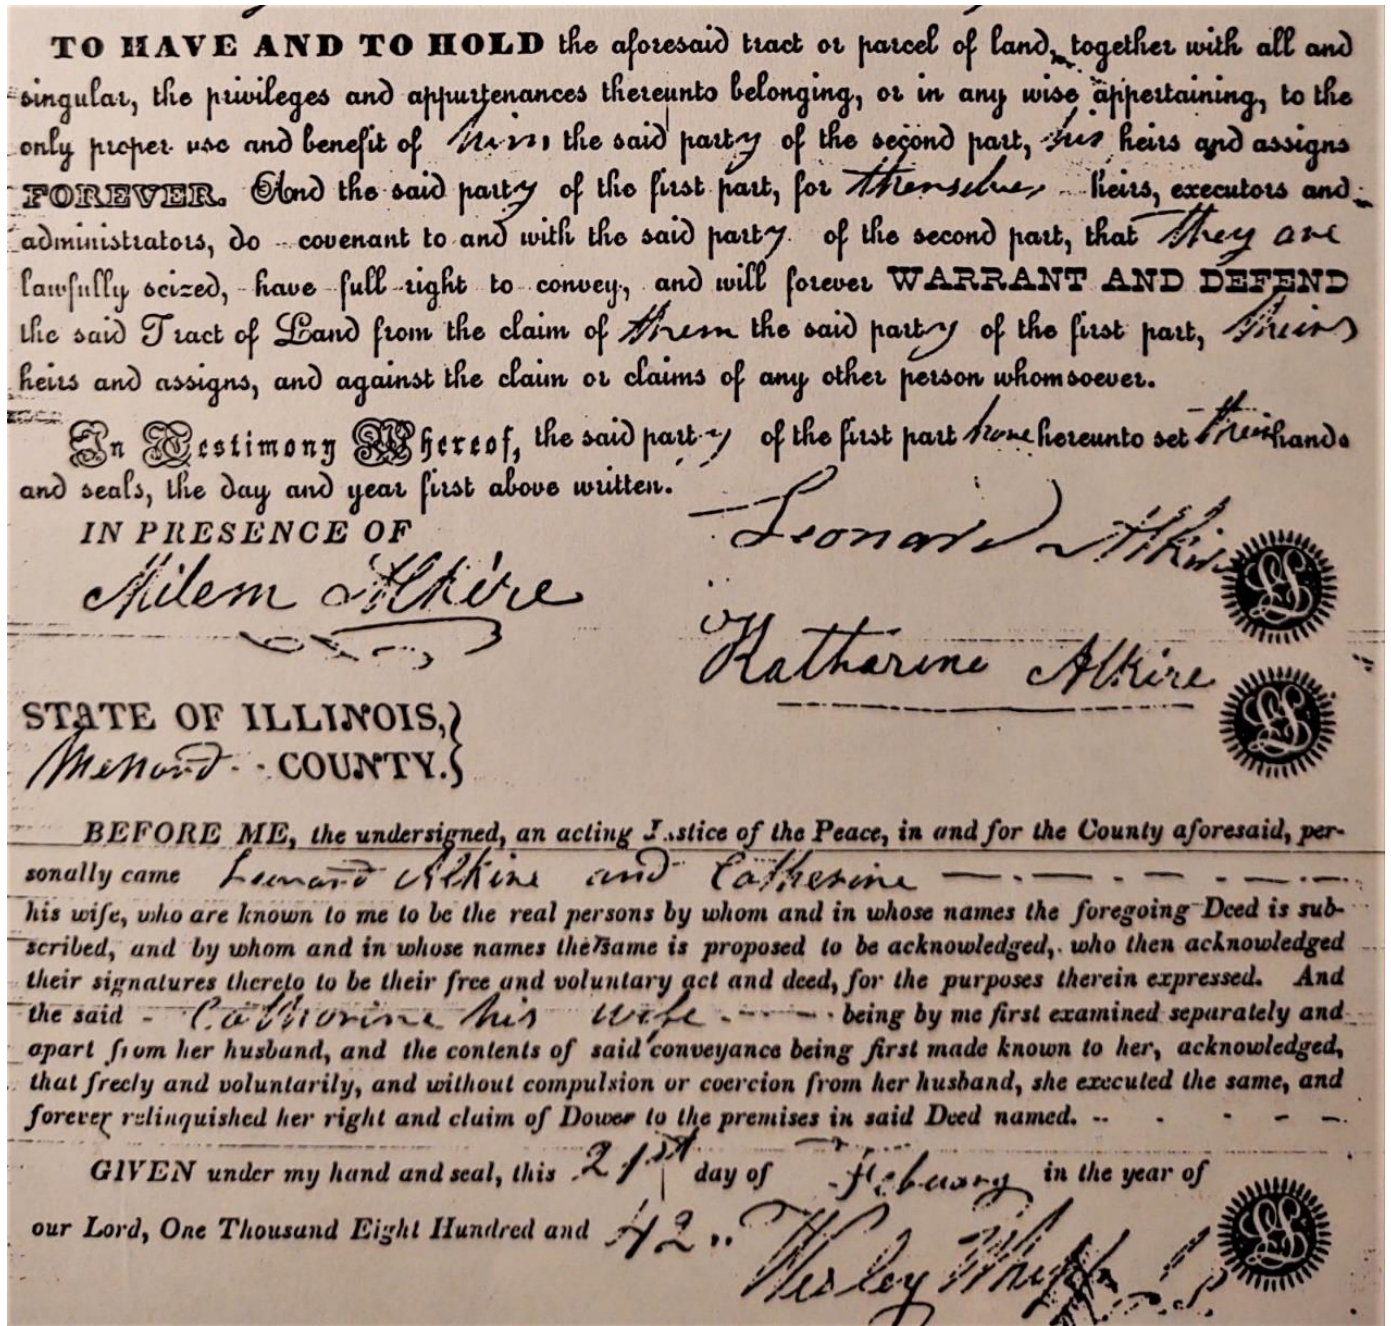 TO HAVE AND TO HOLD the aforesaid tract or parcel of land, together with all and
singular, the privileges and appurtenances thereunto belonging, or in any wise appertaining, to the
only proper use and benefit of him the said party of the second part, his heirs and assigns
FOREVER. And the said party of the first part, for themselves heirs, executors and
administrators, do covenant to and with the said party of the second part, that they are
lawfully seized, have full right to convey, and will forever WARRANT AND DEFEND
the said Tract of Land from the claim of them the said party of the first part, their
heirs and assigns, and against the claim or claims of any other person whomsoever.
In Testimony Whereof, the said party of the first part have hereunto set their hands
and seals, the day and year first above written.
IN PRESENCE OF
Leonard Alkire
Milem Alkire
Katharine Alkire
STATE OF ILLINOIS,}
Menard COUNTY.}
BEFORE ME, the undersigned, an acting Justice of the Peace, in and for the County aforesaid, per-
sonally came Leonard Alkire and Catherine
his wife, who are known to me to be the real persons by whom and in whose names the foregoing Deed is sub-
scribed, and by whom and in whose names the same is proposed to be acknowledged, who then acknowledged
their signatures thereto to be their free and voluntary act and deed, for the purposes therein expressed. And
the said Catharine his wife being by me first examined separately and
apart from her husband, and the contents of said conveyance being first made known to her, acknowledged,
that freely and voluntarily, and without compulsion or coercion from her husband, she executed the same, and
forever relinquished her right and claim of Dower to the premises in said Deed named.
GIVEN under my hand and seal, this 21st day of February in the year of
our Lord, One Thousand Eight Hundred and 42
Wesley